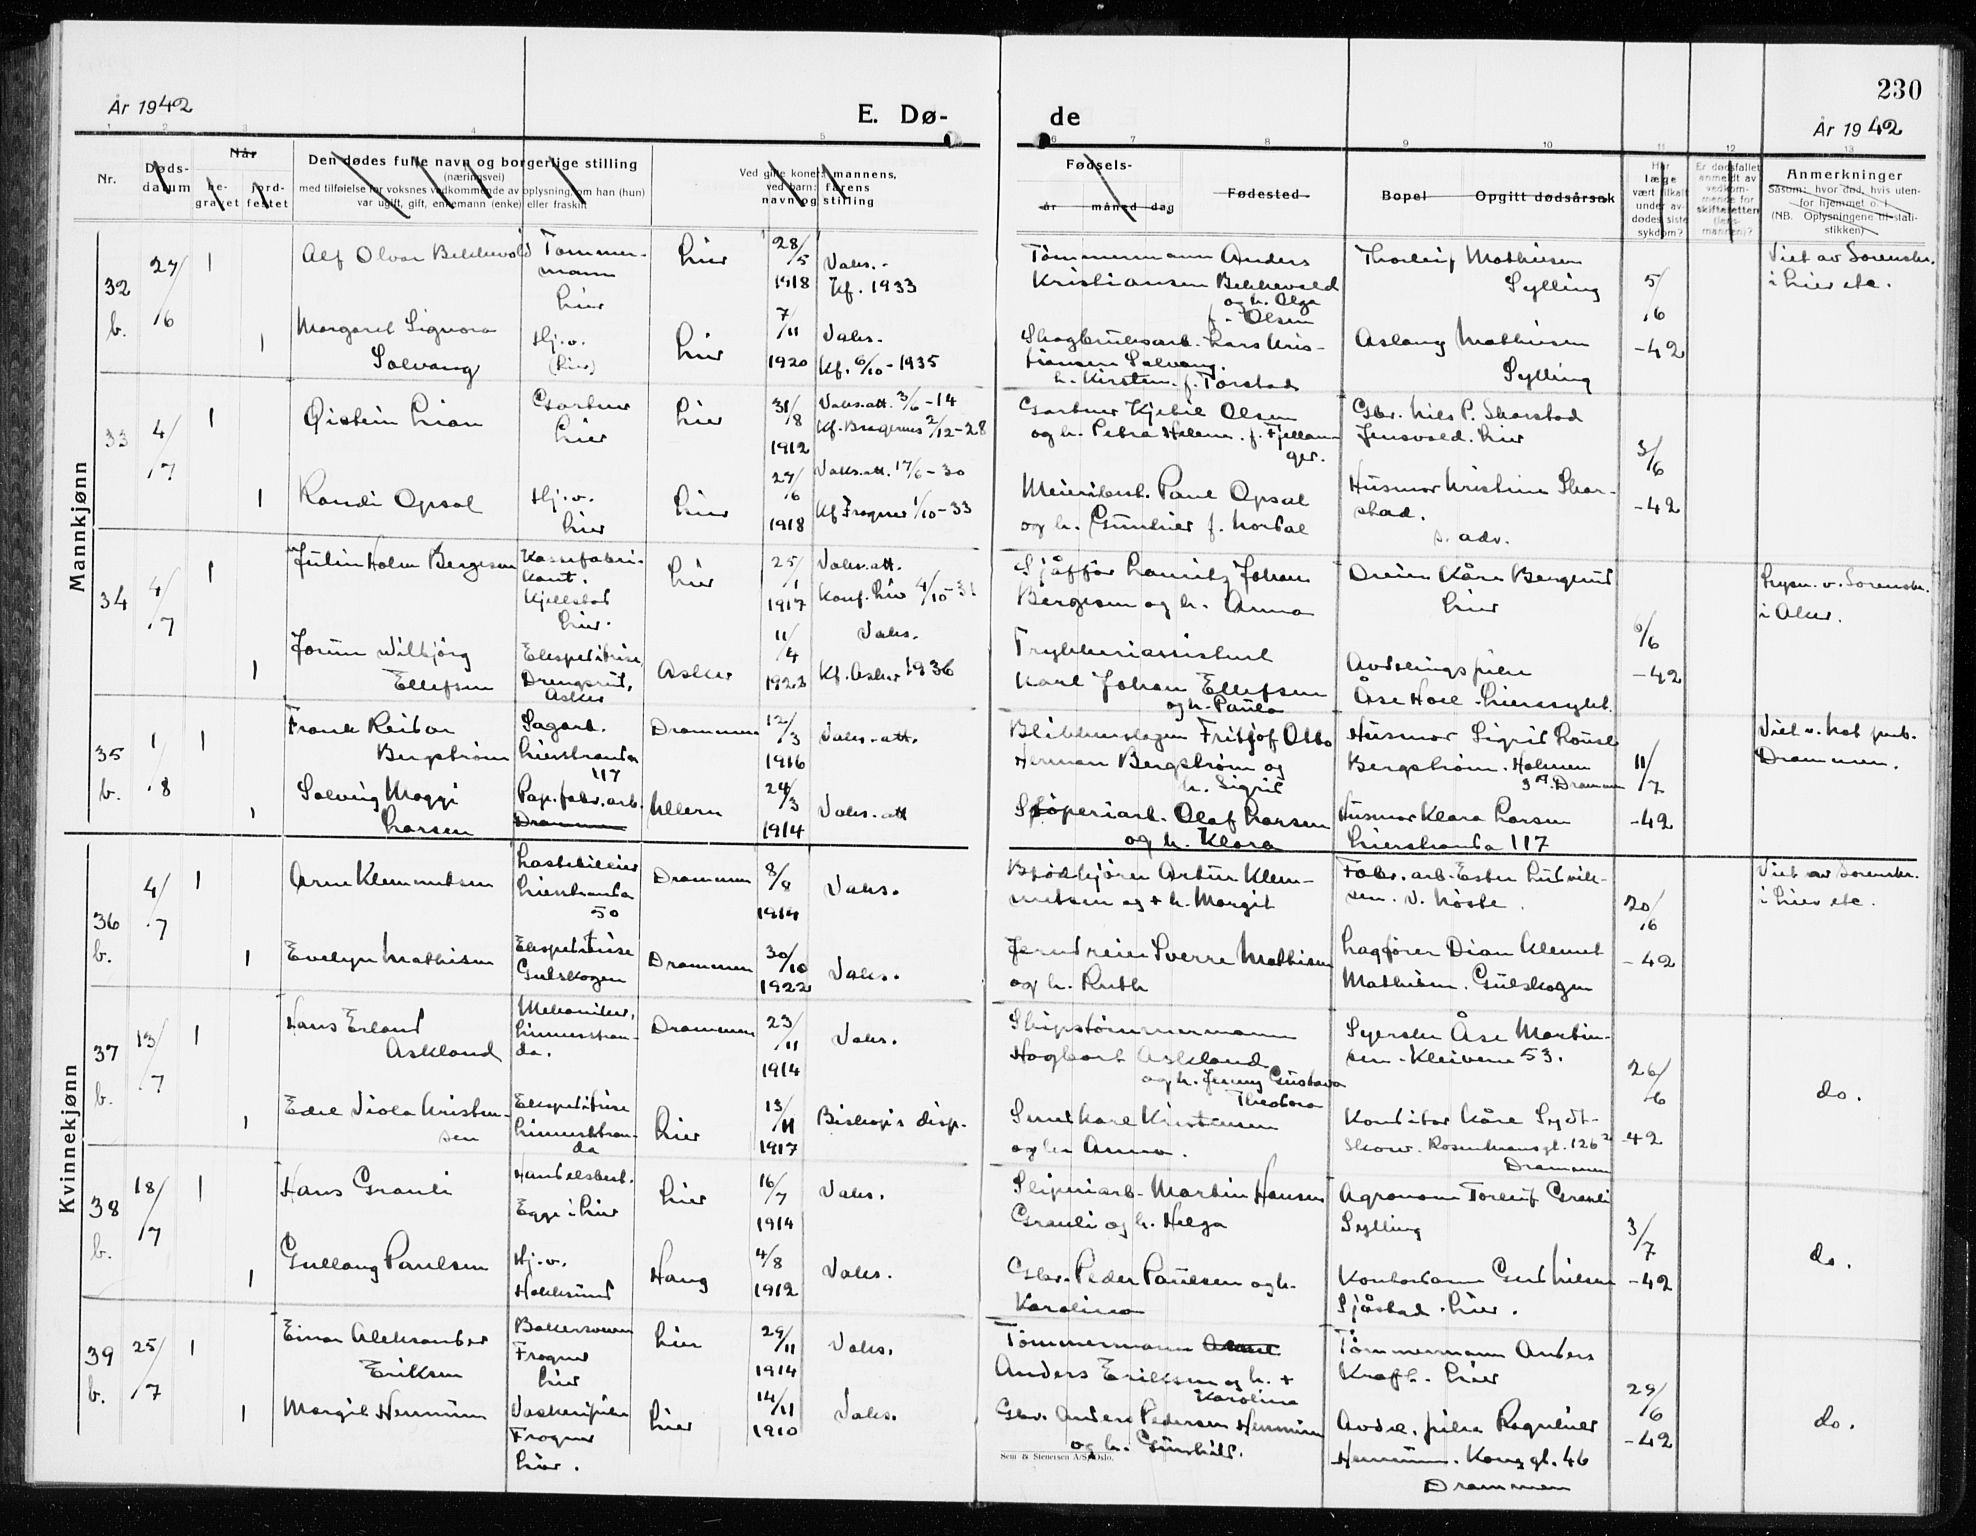 230
År 1942
E. Dø-
de
År 1942
1 2 3 4 5 6 7 8 9 10 11 12 13
Nr.
Døds-
datum
Når
be-
gravet
jord-
festet
Den dødes fulle navn og borgerlige stilling
(næringsvei)
med tilføielse for voksnes vedkommende av oplysning om han (hun)
var ugift, gift, enkemann (enke) eller fraskilt
Ved gifte koner: mannens,
ved barn: farens
navn og stilling
Fødsels-
år måned dag
Fødested
Bopel
Opgitt dødsårsak
Har
læge
vært tilkalt
under av-
dødes siste
sykdom?
Er dødsfallet
anmeldt av
vedkom-
mende for
skifteretten
(lens-
mannen)?
Anmerkninger
Såsom: hvor død, hvis uten-
for hjemmet o. l.
(NB. Oplysningene til stati-
stikken)
Mannkjønn
32
b.
27/6
1
Alf Olvar Bekkevold
Tømmer-
mann
Lier
Lier
28/5
1918
Vaks.
Kf. 1933
Tømmermann Anders
Kristiansen Bekkevold
og h. Olga
f. Olsen
Thorleif Mathisen
Sylling
5/6
-42
Viet av Sorenskr.
i Lier etc.
1
Margaret Signora
Solvang
Hj.v.
(Lier)
Lier
7/11
1920
Vaks.
Kf. 6/10-1935
Lars Kris-
tiansen Solvang.
h. Kirsten f. Torstad
Aslaug Mathisen
Sylling
33
4/7
1
Øistein Lian
Gartner
Lier
Lier
31/8
1912
Vaks.att. 3/6-14
Kf. Bragernes 2/12-28
Gartner Kjetil Olsen
og h. Petra Helene f. Fjellan-
ger.
Gbr. Nils P. Skarstad
Jensvold. Lier
3/6
-42
1
Randi Opsal
Hj.v.
Lier
Lier
27/6
1918
Vaks.att. 17/6-30
Kf Frogner 1/10-33
Meieribest. Paul Opsal
og h. Gunhild f. Nordal
Husmor Kristine Skar-
stad.
s. adr.
34
4/7
1
Julius Holm Bergesen
Kassefabri-
kant.
Kjellstad
Lier.
Lier
25/1
1917
Vaks.att.
Konf. Lier 4/10-31
Sjåffør Lauritz Johan
Bergesen og h. Anna
Dreier Kåre Bergerud
Lier
6/6
-42
Lysn. v. Sorenskr.
i Aker.
1
Jorun Wilbjørg
Ellefsen
Ekspeditrise,
Drengsrud,
Asker
Asker
11/4
1923
Vaks.
Kf. Asker 1936
Trykkeriassistent
Karl Johan Ellefsen
og h. Paula
Avdelingspike
Åse Hoel
35
b.
1/8
1
Frank Reidar
Bergstrøm
Sagarb.
Lierstranda
117
Drammen
12/3
1916
Vaks.att.
Blikkenslager Fritjof Otto
Herman Bergstrøm og
h. Sigrid
Husmor Sigrid Louise
Bergstrøm. Holmen
Drammen
11/7
-42
Viet v. Not. pub.
Drammen.
1
Solveig Maggi
Larsen
Pap.fabr.arb.
Drammen
Ullern
24/3
1914
Vaks.att
Støperiarb. Olaf Larsen
og h. Klara
Husmor Klara Larsen
Lierstranda 117
Kvinnekjønn
36
b.
4/7
1
Arne Klemmetsen
Lastebileier
Lierstranda
50
Drammen
8/8
1914
Vaks.
Brødkjører Artur Klem-
metsen og + h. Margit
Fabr.arb. Ester Ludvik-
sen. N. Nøste.
20/6
-42
Viet av Sorenskr.
i Lier etc.
1
Evelyn Mathisen
Ekspeditrise
Gulskogen
Drammen
30/10
1922
Vaks.
Jerndreier Sverre Mathisen
og h. Ruth
Lagfører Dian Klemet
Mathisen. Gulskogen
37
b.
13/7
1
Hans Erland
Askland
Mekaniker,
Linnesstran-
da.
Drammen
23/11
1914
Vaks.
Skipstømmermann
Hagbart Askland
og h. Jenny Gustava
Theodora
Syerske Åse Martin-
sen. Kleivene 53.
26/6
-42
do.
1
Edel Viola Kristen-
sen
Ekspeditrise
Linnesstran-
da
Lier
13/11
1917
Biskop's disp.
Smed Karl Kristensen
og h. Anna.
Konditor Kåre Sydt-
skow. Rosenkransgt. 126²
Drammen
38
b.
18/7
1
Hans Granli
Handelsbest.
Egge i Lier
Lier
16/7
1914
Vaks.
Sliperiarb. Martin Hansen
Granli og h. Helga
Agronom Torleif Granli
Sylling
3/7
-42
do.
1
Gullaug Paulsen
Hj.v.
Hokksund
Haug
4/8
1912
Vaks.
Gbr. Peder Paulsen og h.
Karoline
Kontordame Gerd Nilsen
Sjåstad. Lier.
39
b.
25/7
1
Einar Aleksander
Eriksen
Bakersvenn
Frogner
Lier
Lier
29/11
1914
Vaks.
Tømmermann
Anders Eriksen og h. +
Karoline
Tømmermann Anders
Krafth. Lier
29/6
-42
do.
1
Margit Hennum
Vaskeripike
Frogner
Lier.
Lier
14/11
1910
Vaks.
Gbr. Anders Pedersen Hennum
og h. Gunhild.
Avdel. pike Ragnhild
Hennum. Kongsgt. 46
Drammen
Sem & Stenersen A/S, Oslo.